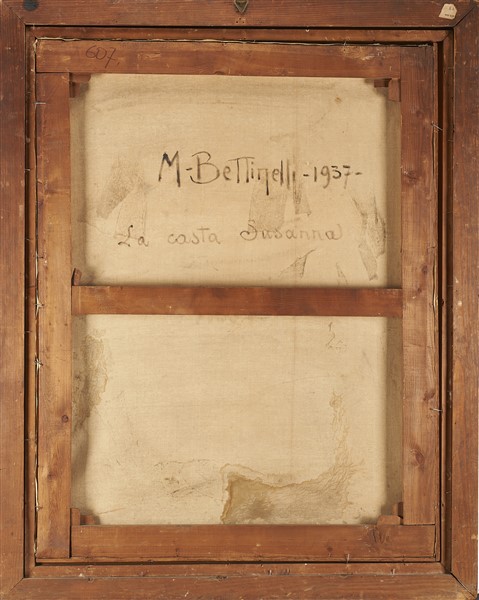 607
M-Bettinelli-1937-
La casta Susanna